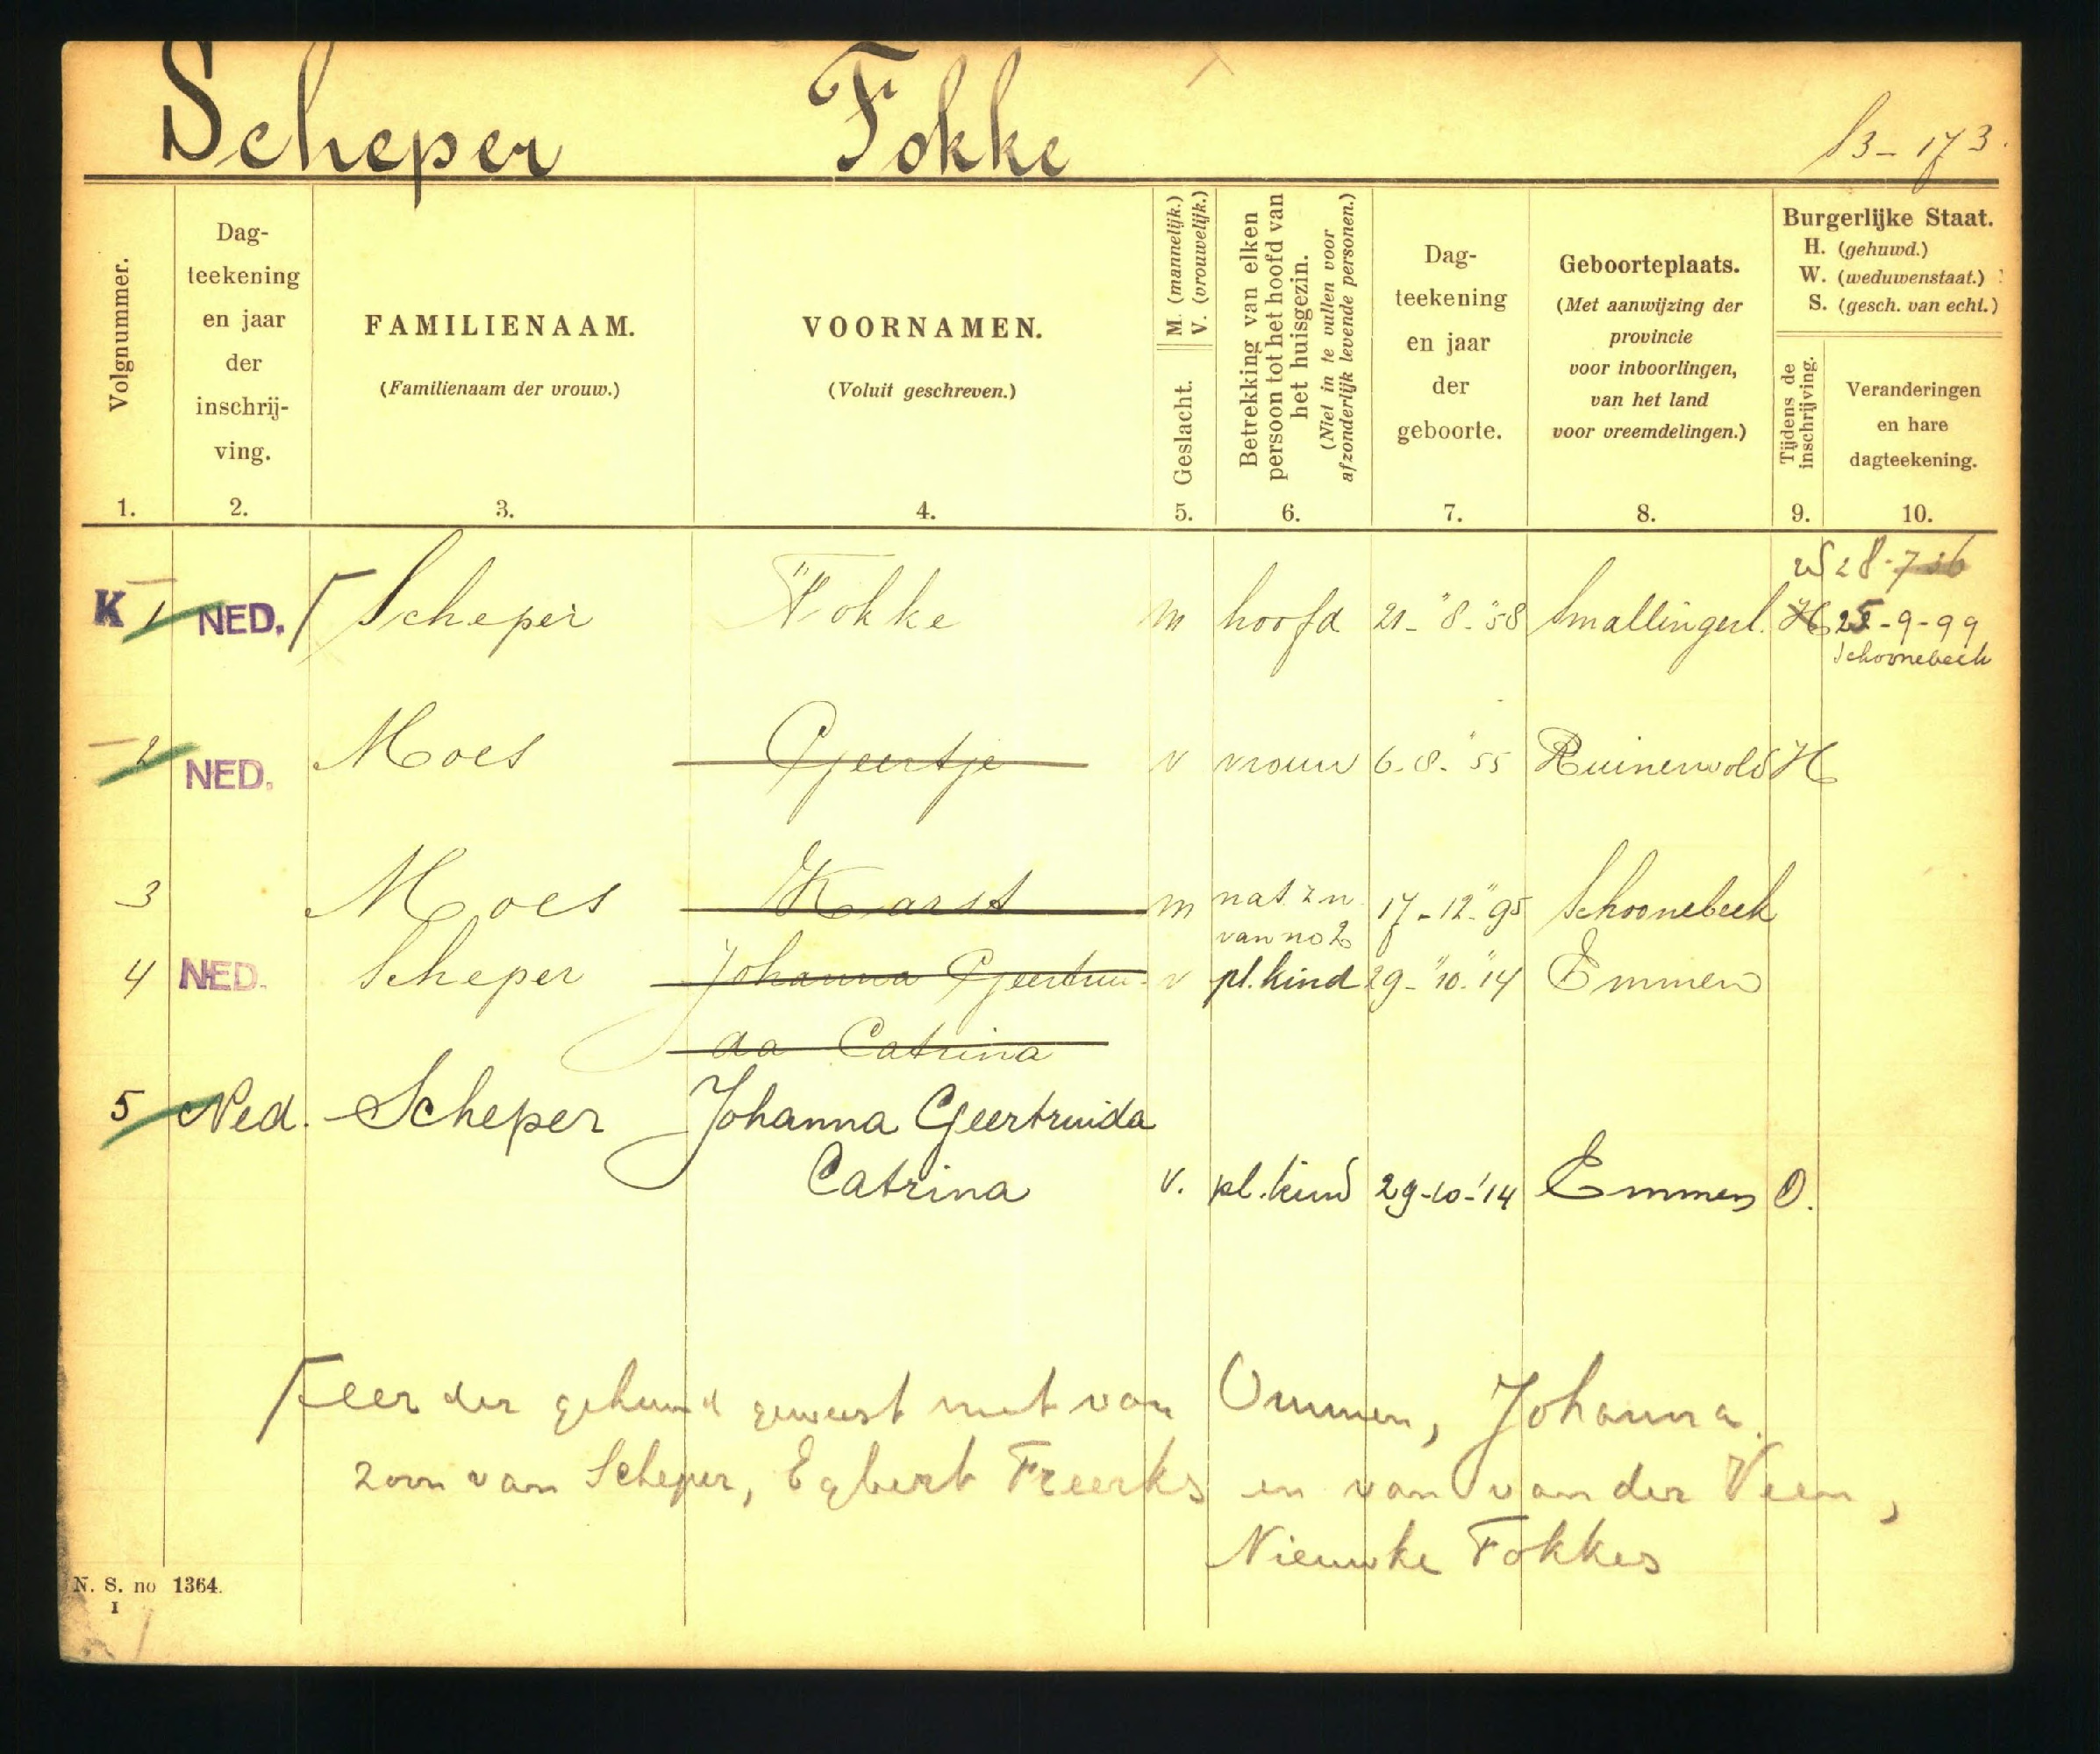 Scheper Fokke B-173.
Volgnummer.
Dag-
teekening
en jaar
der
inschrij-
ving.
FAMILIENAAM.
(Familienaam der vrouw.)
VOORNAMEN.
(Voluit geschreven.)
M. (mannelijk.)
V. (vrouwelijk.)
Geslacht.
Betrekking van elken
persoon tot het hoofd van
het huisgezin.
(Niet in te vullen voor
afzonderlijk levende personen.)
Dag-
teekening
en jaar
der
geboorte.
Geboorteplaats.
(Met aanwijzing der
provincie
voor inboorlingen,
van het land
voor vreemdelingen.)
Burgerlijke Staat.
H. (gehuwd.)
W. (weduwenstaat.)
S. (gesch. van echt.)
Tijdens de
inschrijving.
Veranderingen
en hare
dagteekening.
1. 2. 3. 4. 5. 6. 7. 8. 9. 10.
W 28-7-36
K 1 NED. Scheper Fokke m hoofd 21-"8-"58 Smallingerl. H 25-9-99
Schoonebeek
2 NED. Moes Geertje v vrouw 6-8-"55 Ruinerwold H
3 Moes Karst m nat. zn 17-12-"95 Schoonebeek
van no 2
4 NED. Scheper Johanna Geertrui- v pl. kind 29-"10-"14 Emmen
da Catrina
5 Ned. Scheper Johanna Geertruida
Catrina v. pl. kind 29-10-'14 Emmen O.
eerder gehuwd geweest met van Ommen, Johanna.
zoon van Scheper, Egbert Freerks en van van der Veen,
Nieuwke Fokkes
N. S. no 1364.
I